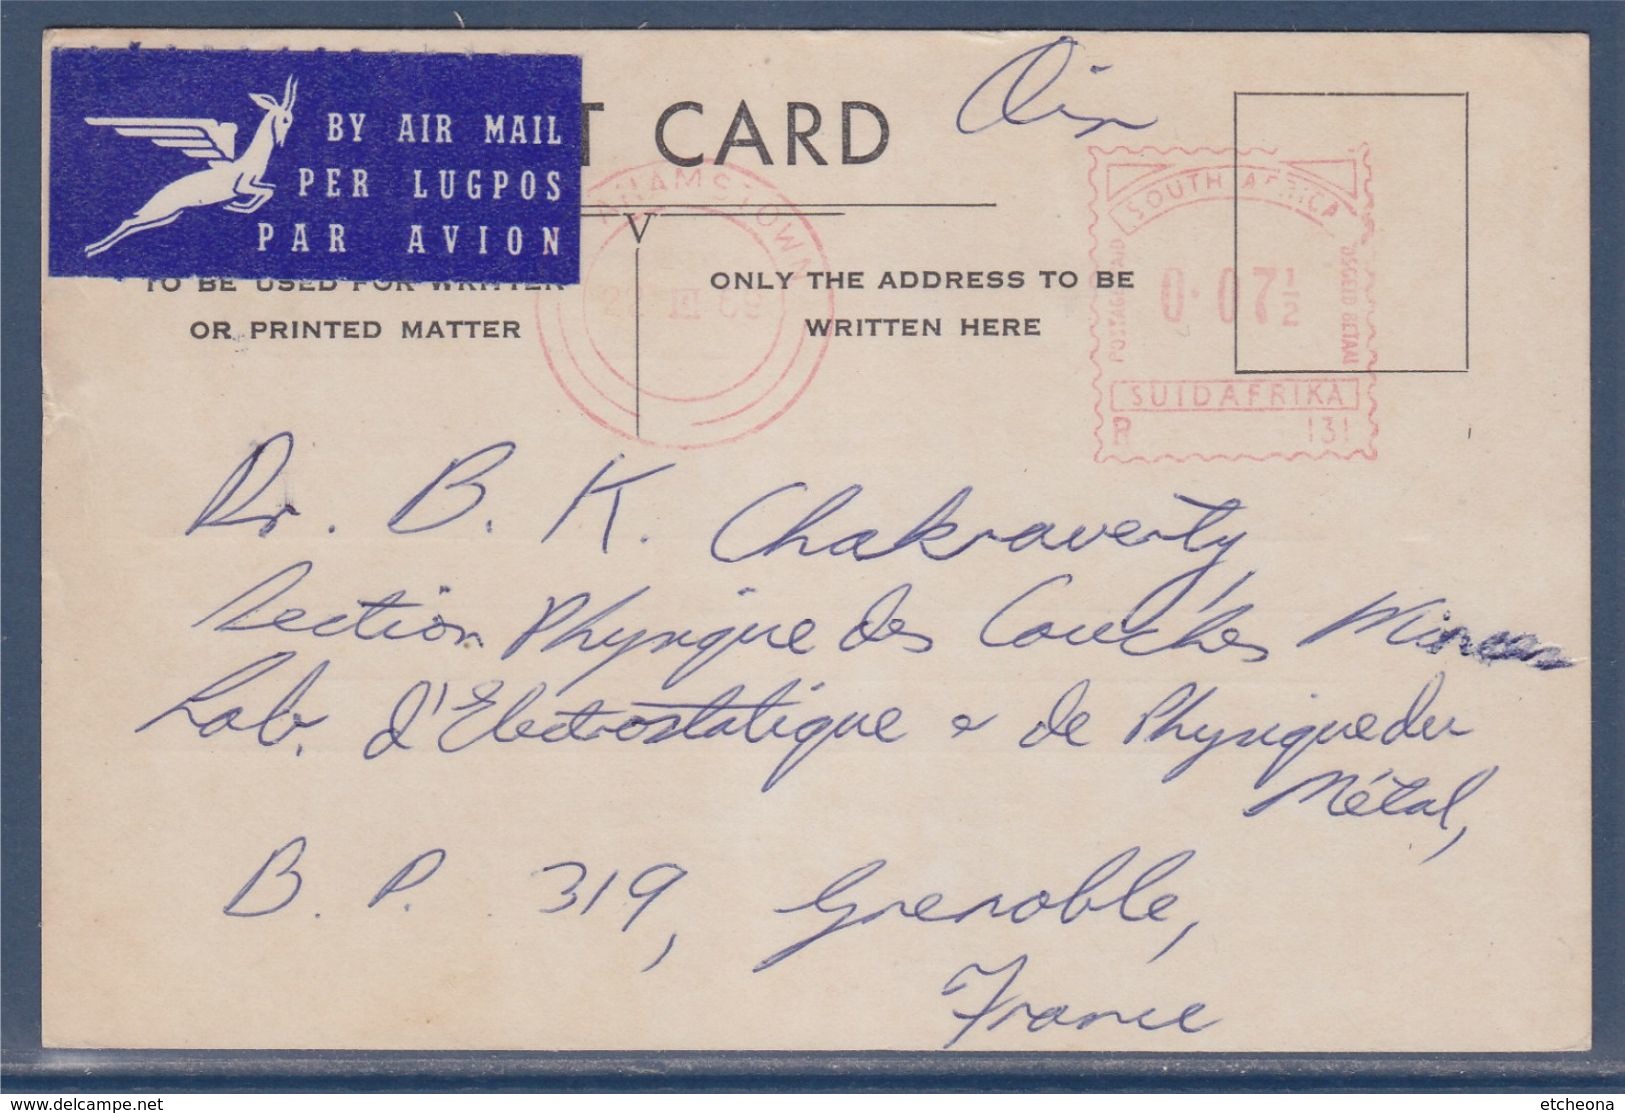 BY AIR MAIL
PER LUGPOS
PAR AVION
T CARD
Air
TO BE USED FOR WRITTEN
OR PRINTED MATTER
V
ONLY THE ADDRESS TO BE
WRITTEN HERE
HAMSTOWN
III 69
SOUTH AFRICA
POSTAGE PAID
0·07½
POSGELD BETAAL
SUIDAFRIKA
R 131
Dr. B. K. Chakraverty,
Section Physique des Couches Minces
Lab. d'Electrostatique & de Physique du
Métal,
B. P. 319, Grenoble,
France
delcampe.net
etcheona